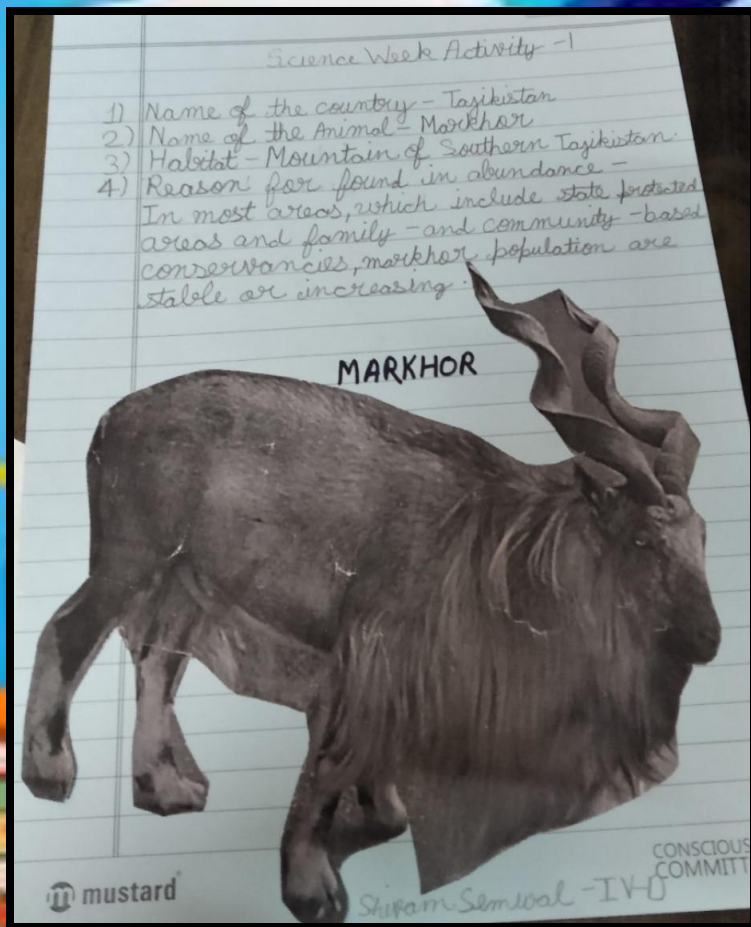 Science Week Activity - 1
1) Name of the country - Tajikistan
2) Name of the Animal - Markhor
3) Habitat - Mountain of Southern Tajikistan.
4) Reason for found in abundance -
In most areas, which include state protected
areas and family - and community - based
conservancies, markhor population are
stable or increasing.
MARKHOR
CONSCIOUS
COMMITT
m mustard
Shivam Semwal - IV-D